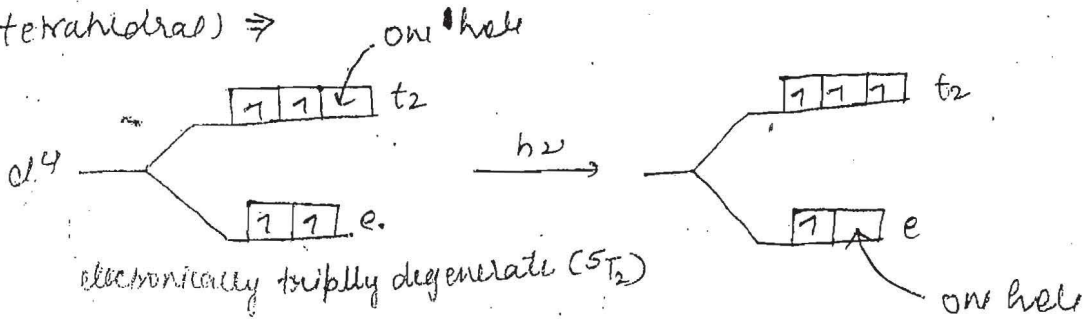 tetrahidral) ⇒
one hole
1 1 t2
d4
1 1 e.
electronically triplly degenerate (5T2)
hν
1 1 1 t2
1 e
one hole